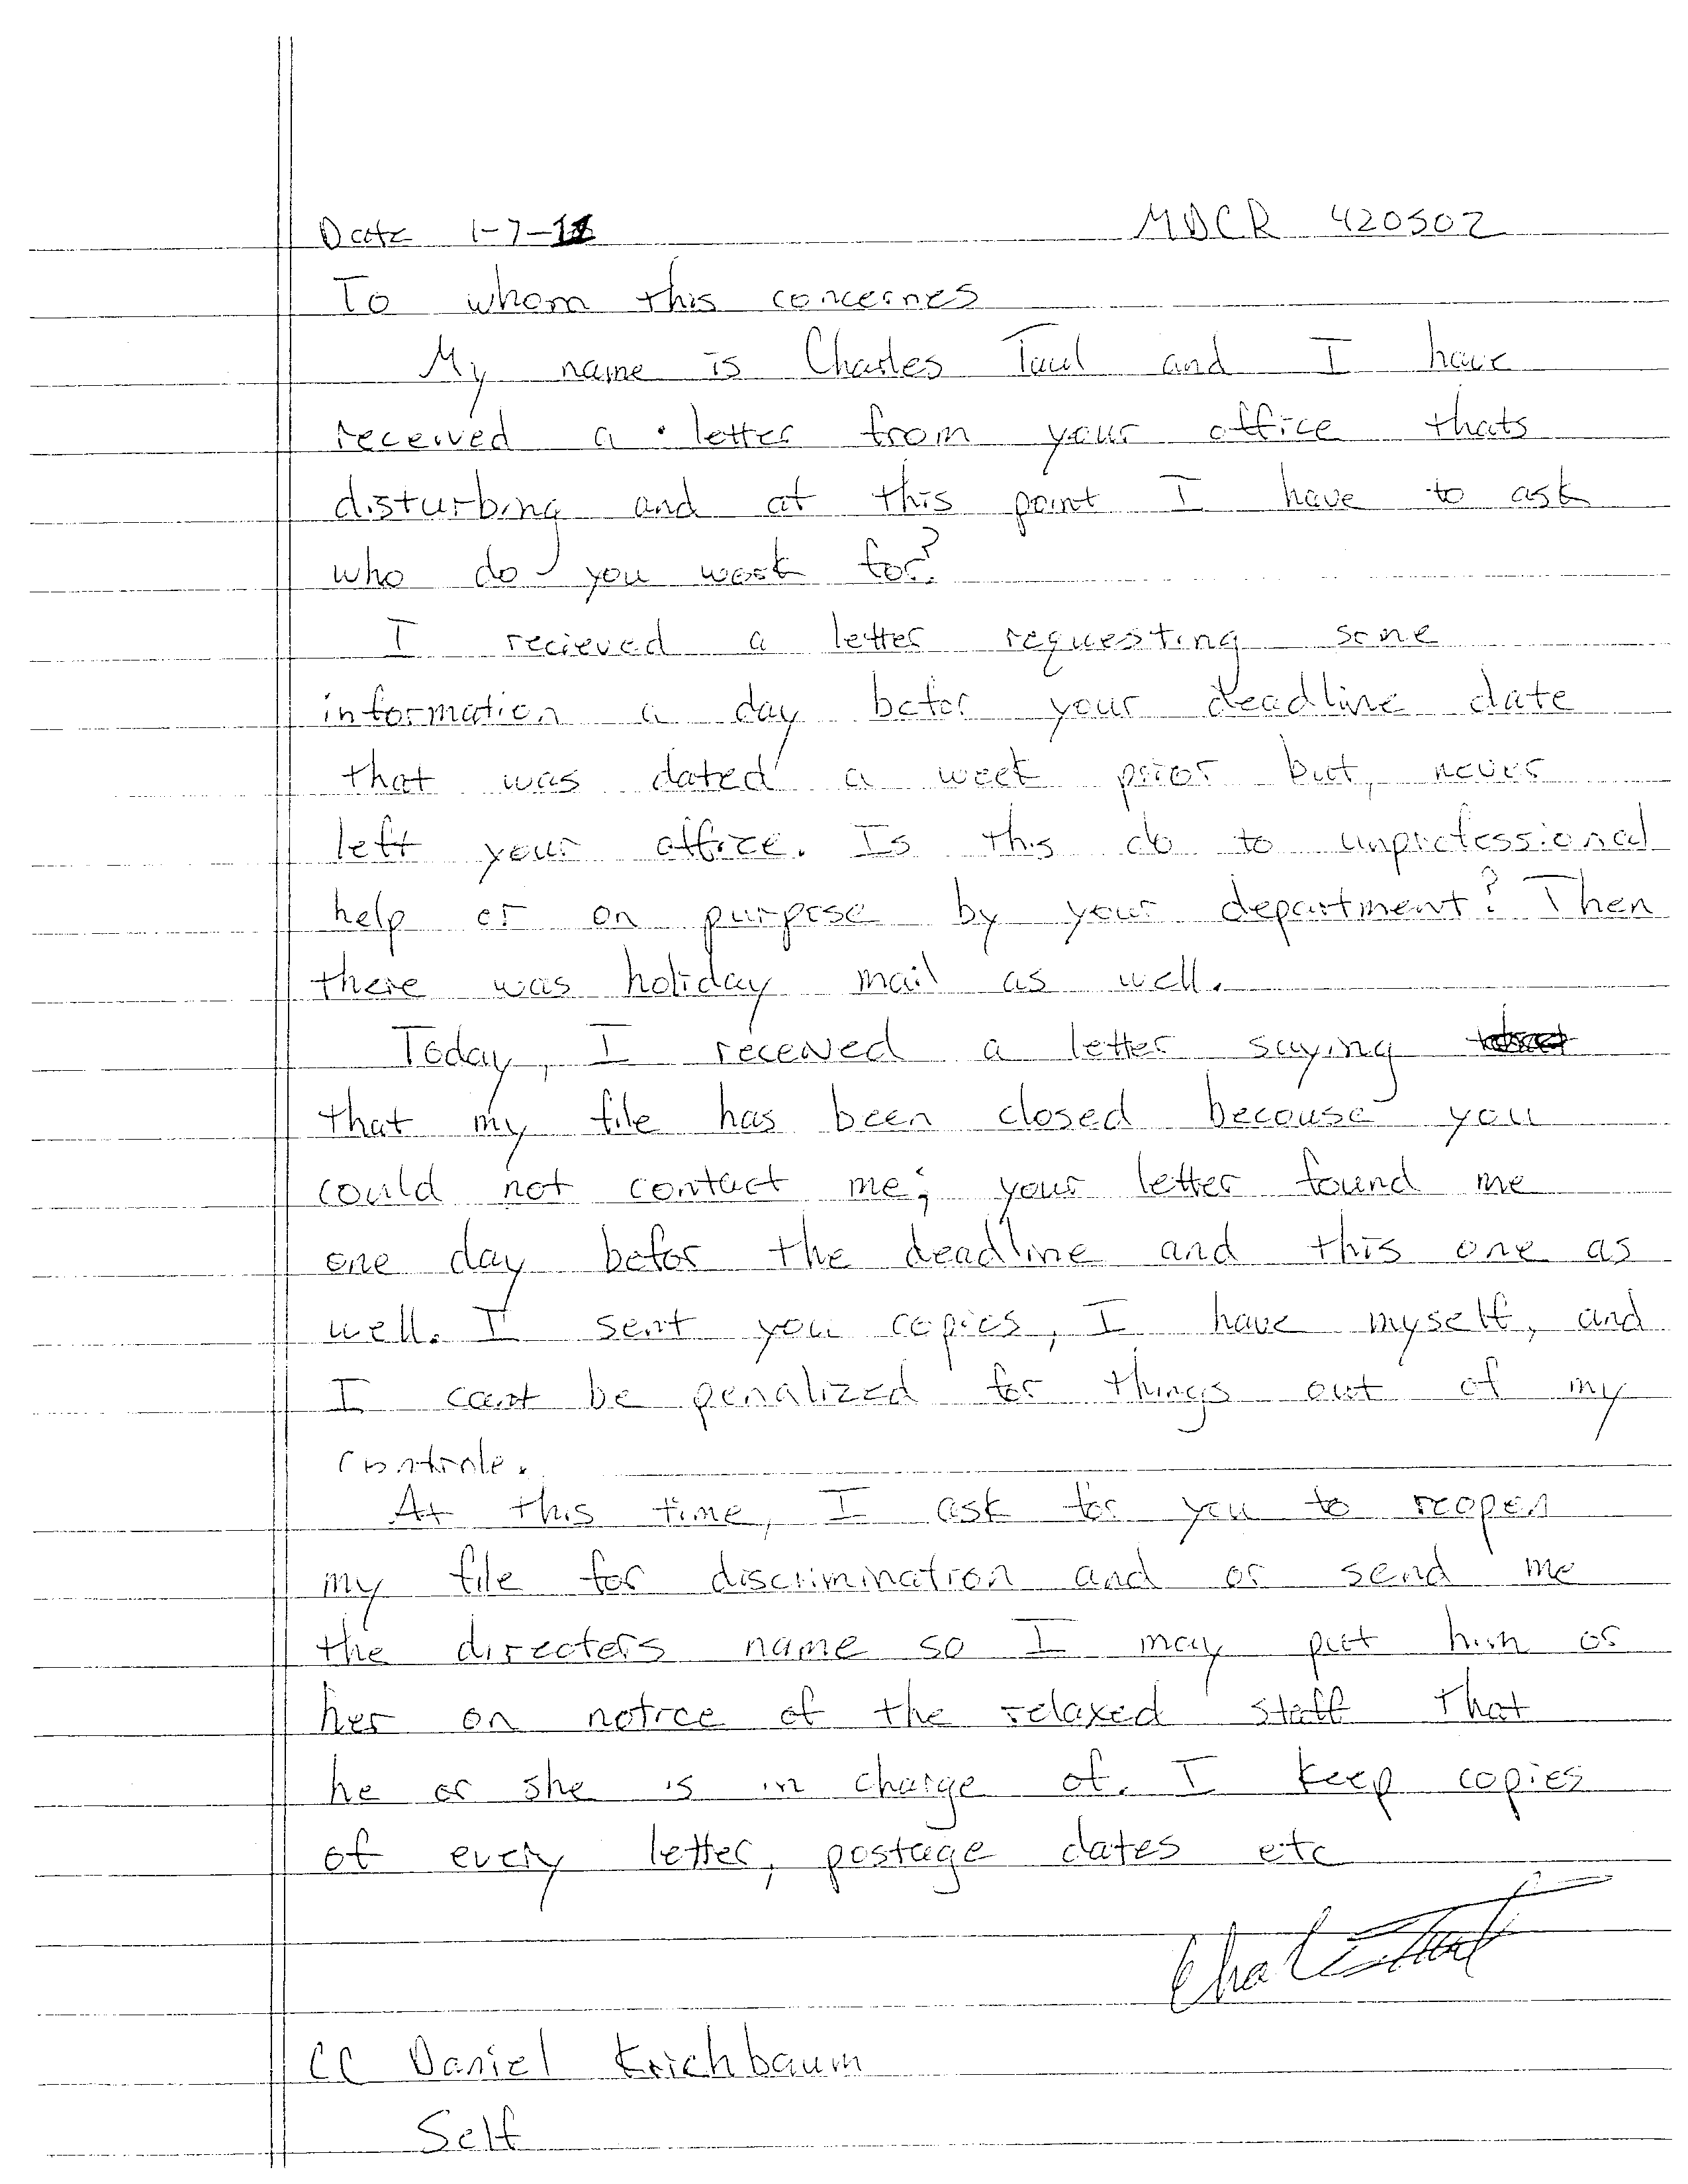 Date 1-7-11 MDCR 420502
To whom this concernes
My name is Charles Taul and I have
received a letter from your office thats
disturbing and at this point I have to ask
who do you work for?
I recieved a letter requesting some
information a day befor your deadline date
that was dated a week prior but, never
left your office. Is this do to unprofessional
help or on purpose by your department? Then
there was holiday mail as well.
Today, I received a letter saying
that my file has been closed becouse you
could not contact me; your letter found me
one day befor the deadline and this one as
well. I sent you copies, I have myself, and
I cant be penalized for things out of my
controle.
At this time, I ask for you to reopen
my file for discrimination and or send me
the directers name so I may put him or
her on notice of the relaxed staff that
he or she is in charge of. I keep copies
of every letter, postage dates etc
CC Daniel Krichbaum
Self